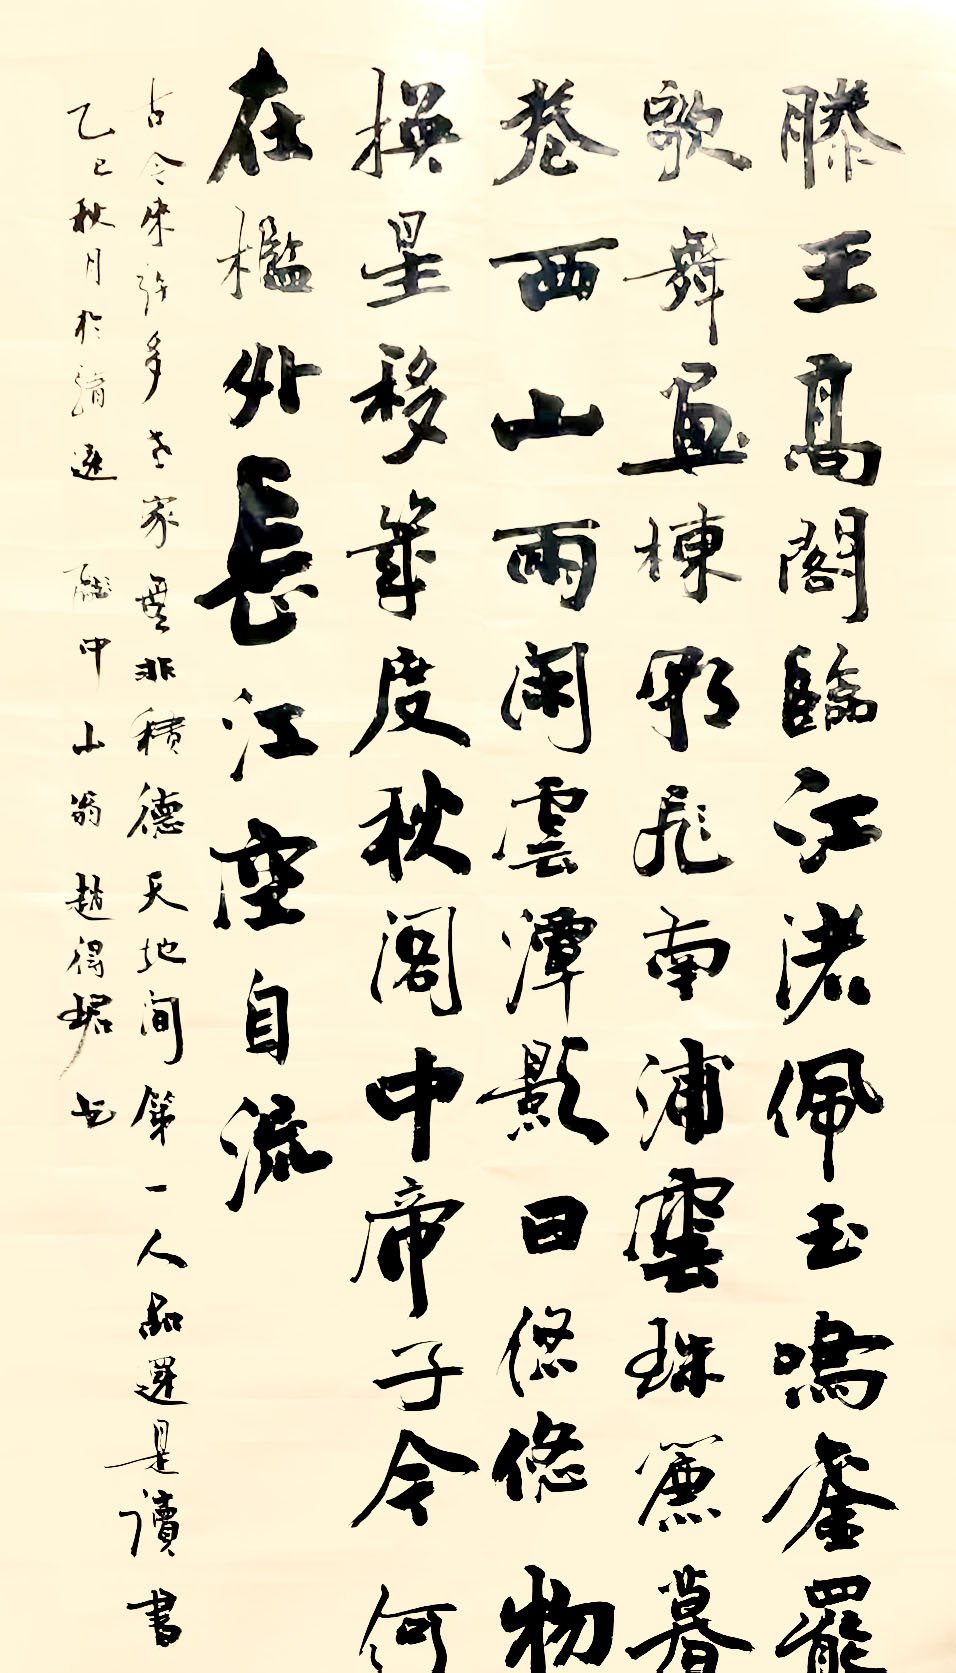 滕王高閣臨江渚佩玉鳴鑾罷
歌舞畫棟朝飛南浦雲珠簾暮
卷西山雨閑雲潭影日悠悠物
換星移幾度秋閣中帝子今何
在檻外長江空自流
古今來許多世家無非積德天地間第一人品還是讀書
乙巳秋月於 中山翁趙得 書